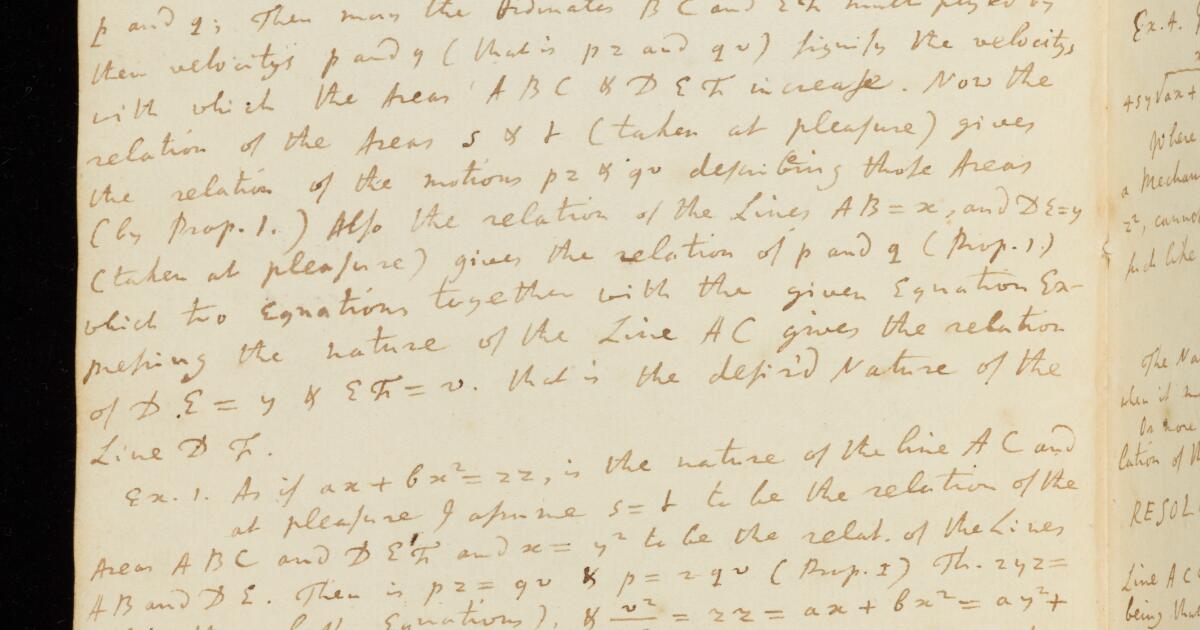 p and q; Then may the Ordinates BC and EF multiplyed by
their velocitys p and q (that is pz and qv) signify the velocitys
with which the Areas ABC & DEF increase. Now the
relation of the Areas s & t (taken at pleasure) gives
the relation of the motions pz & qv describing those Areas
(by Prop. 1.) Also the relation of the Lines AB = x, and DE = y
(taken at pleasure) gives the relation of p and q (Prop. 1.)
which two Equations together with the given Equation Ex-
pressing the nature of the Line AC gives the relation
of DE = y & EF = v. that is the desir'd Nature of the
Line DF.
Ex. 1. As if ax + bx² = zz, is the nature of the line AC and
at pleasure I assume s = t to be the relation of the
Areas ABC and DEF and x = y² to be the relat. of the Lines
AB and DE. Then is pz = qv & p = 2qv (Prop. I) Th. 2yz =
Equations), & v² = zz = ax + bx² = ay² +
Ex. 4.
4sy√ax +
Where
a Mechan
z², cannot
such like
The Na
when it
Or more
lation of th
RESOL
Line AC
being tha